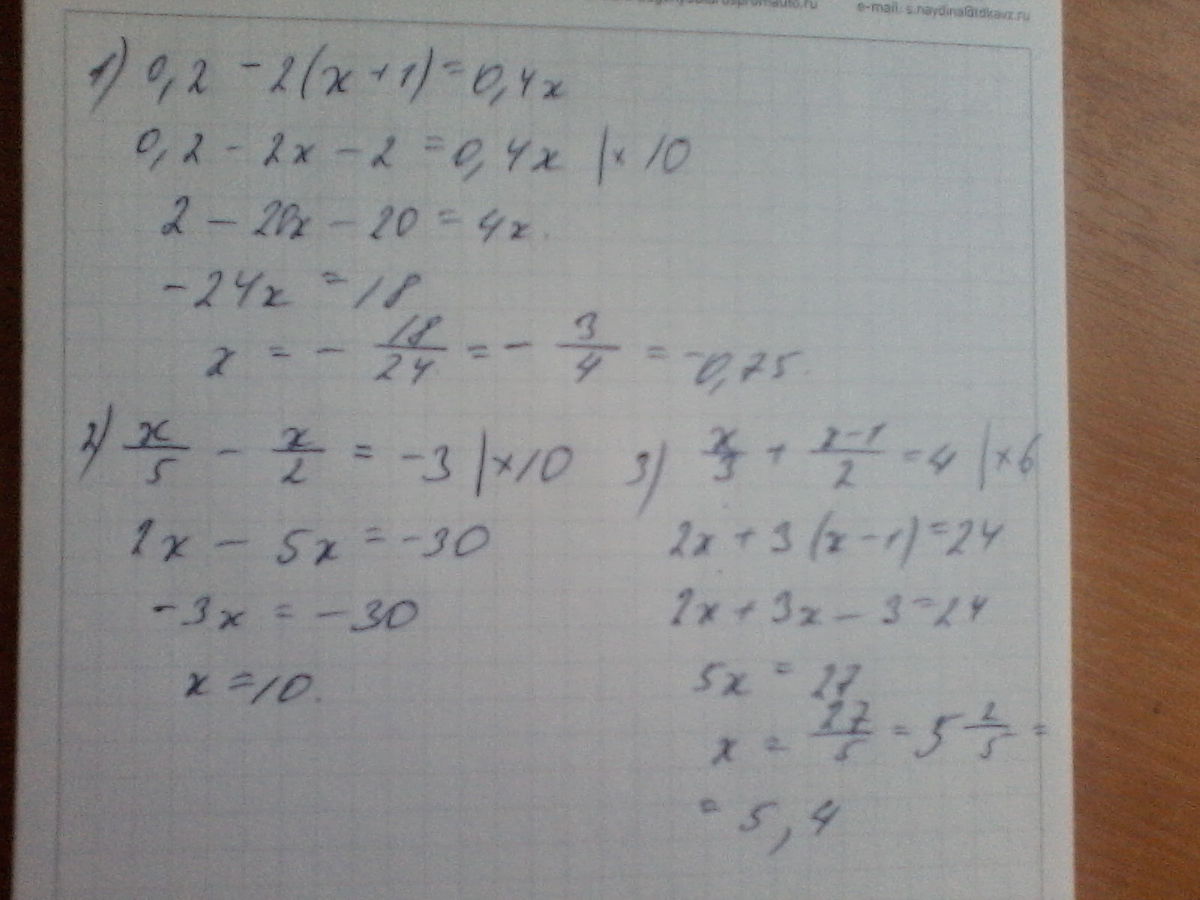 e-mail: s.naydina@tdkavz.ru
1) 0,2 - 2(x + 1) = 0,4x
0,2 - 2x - 2 = 0,4x | × 10
2 - 20x - 20 = 4x.
-24x = 18
x = - 18/24 = - 3/4 = -0,75.
2) x/5 - x/2 = -3 | × 10
2x - 5x = -30
-3x = -30
x = 10.
3) x/3 + x-1/2 = 4 | × 6
2x + 3(x - 1) = 24
2x + 3x - 3 = 24
5x = 27
x = 27/5 = 5 2/5 =
= 5,4